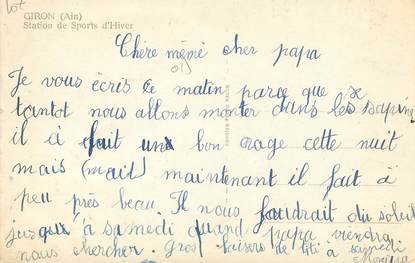 lot
GIRON (Ain)
Station de Sports d'Hiver
Chère mémé cher papa
Je vous écris ce matin parce que se
tantot nous allons monter dans les sapins
il à fait un bon orage cette nuit
mais (mait) maintenant il fait à
peu près beau. Il nous faudrait du soleil
jusqu'à samedi quand papa viendra
nous chercher. Gros baisers de titi à samedi